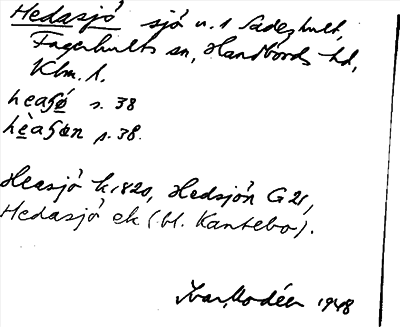 Hedasjö sjö n. 1 Sadeshult,
Fagerhults sn, Handbörds hd,
Klm. l.
heaʃø s. 38
hèaʃøn s. 38.
Heasjö k 1820, Hedsjön G 21,
Hedasjö ek (bl. Kantebo).
Ivar Modéer 1948